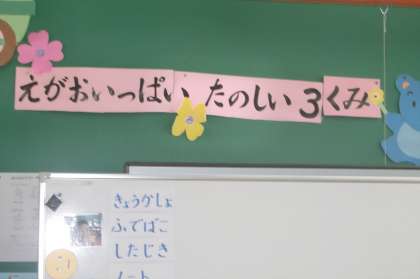 えがおいっぱい たのしい 3くみ
きょうかしょ
ふでばこ
したじき
ノート